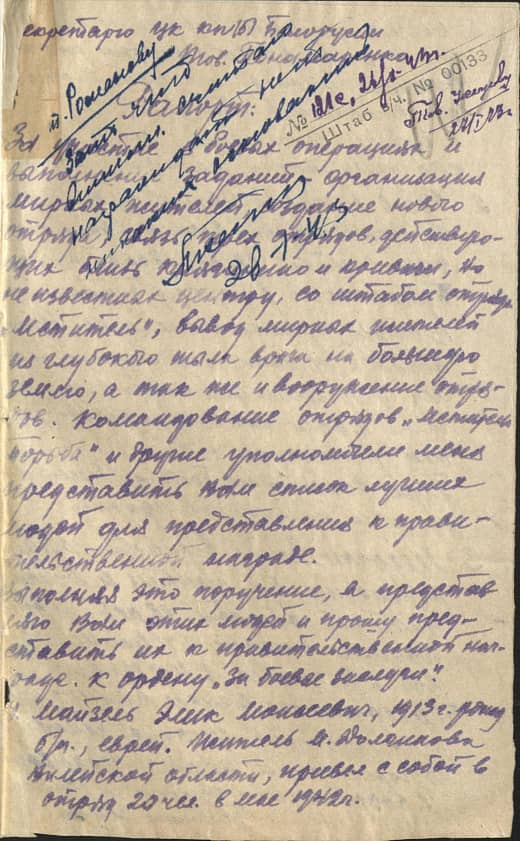 секретарю ЦК КП(б) Белоруссии
тов. Пономаренко
т. Романову
№ 121с, 26/I-43г.
Штаб в/ч. № 00133
Рапорт:
За участие в боевых операциях и
выполнении заданий, организация
мирных жителей создание нового
отряда связь трех отрядов, действую-
щих близ и кривичи, но
неизвестных центру, со штабом отряда
"Мститель", вывод мирных жителей
из глубокого тыла врага на большую
землю, а так же и вооружение отря-
дов. Командование отрядов "Мститель
борьба" и другие уполномотили меня
представить Вам список лучших
людей для представления к прави-
тельственной награде.
Выполняя это поручение, я представ
ляю Вам этих людей и прошу пред-
ставить их к правительственной наг-
раде. к ордену "За боевые заслуги".
Майзель Элик Моисеевич, 1913 г. рожд
б/п., еврей. Житель м. Долгиново
Вилейской области, привел с собой в
отряд 20 чел. в мае 1942 г.
28-I-43